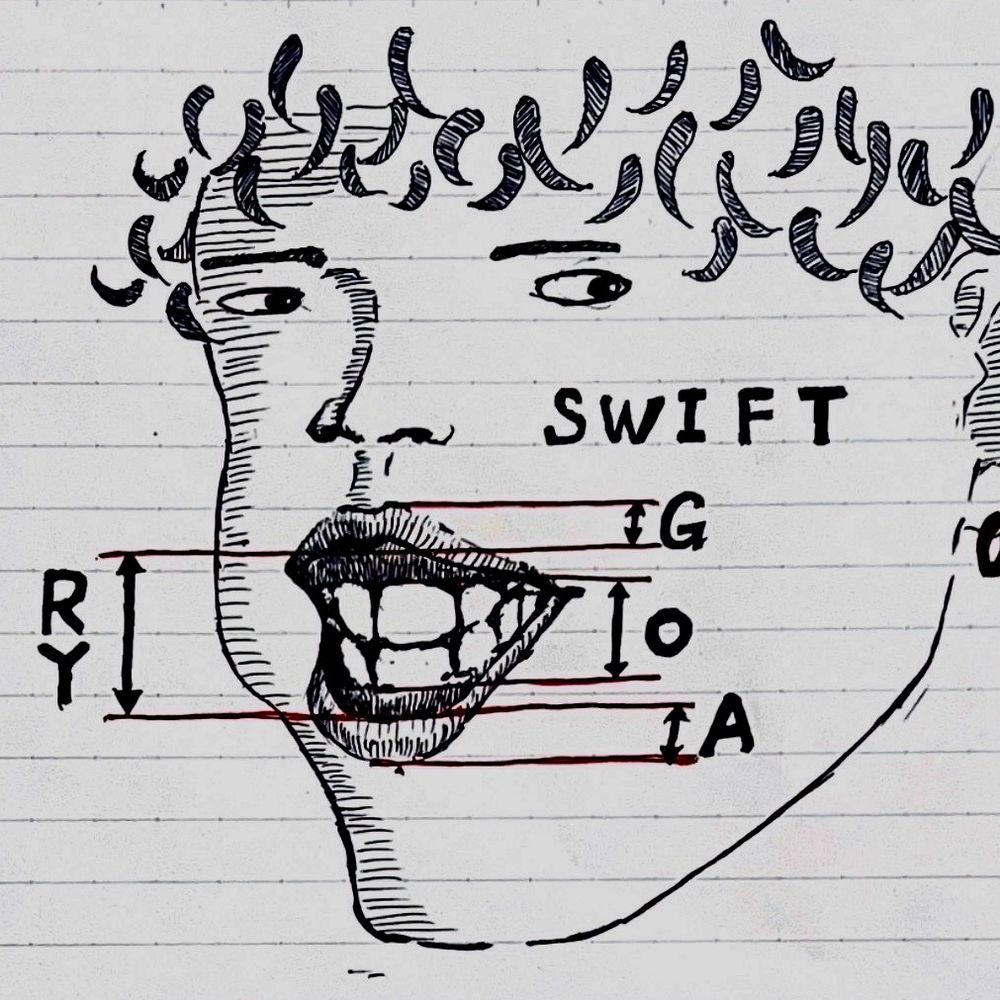 SWIFT
G
R
Y
O
A